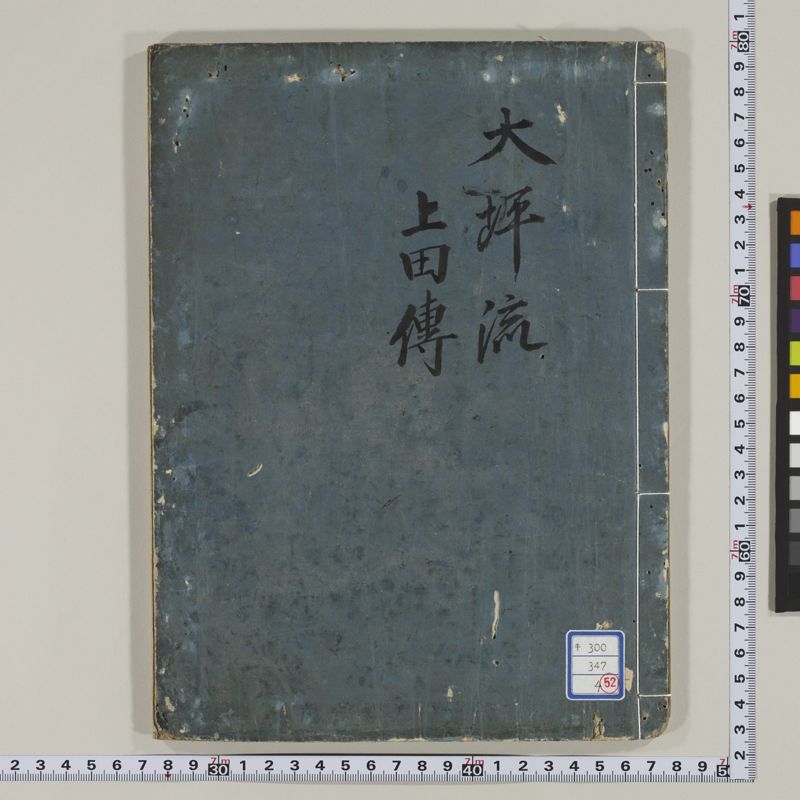 大坪流
上田傳
300
347
4
52
1
80
9
8
7
6
5
4
3
2
1
70
9
8
7
6
5
4
3
2
1
60
9
8
7
6
5
4
3
2
2 3 4 5 6 7 8 9 30 1 2 3 4 5 6 7 8 9 40 1 2 3 4 5 6 7 8 9 5